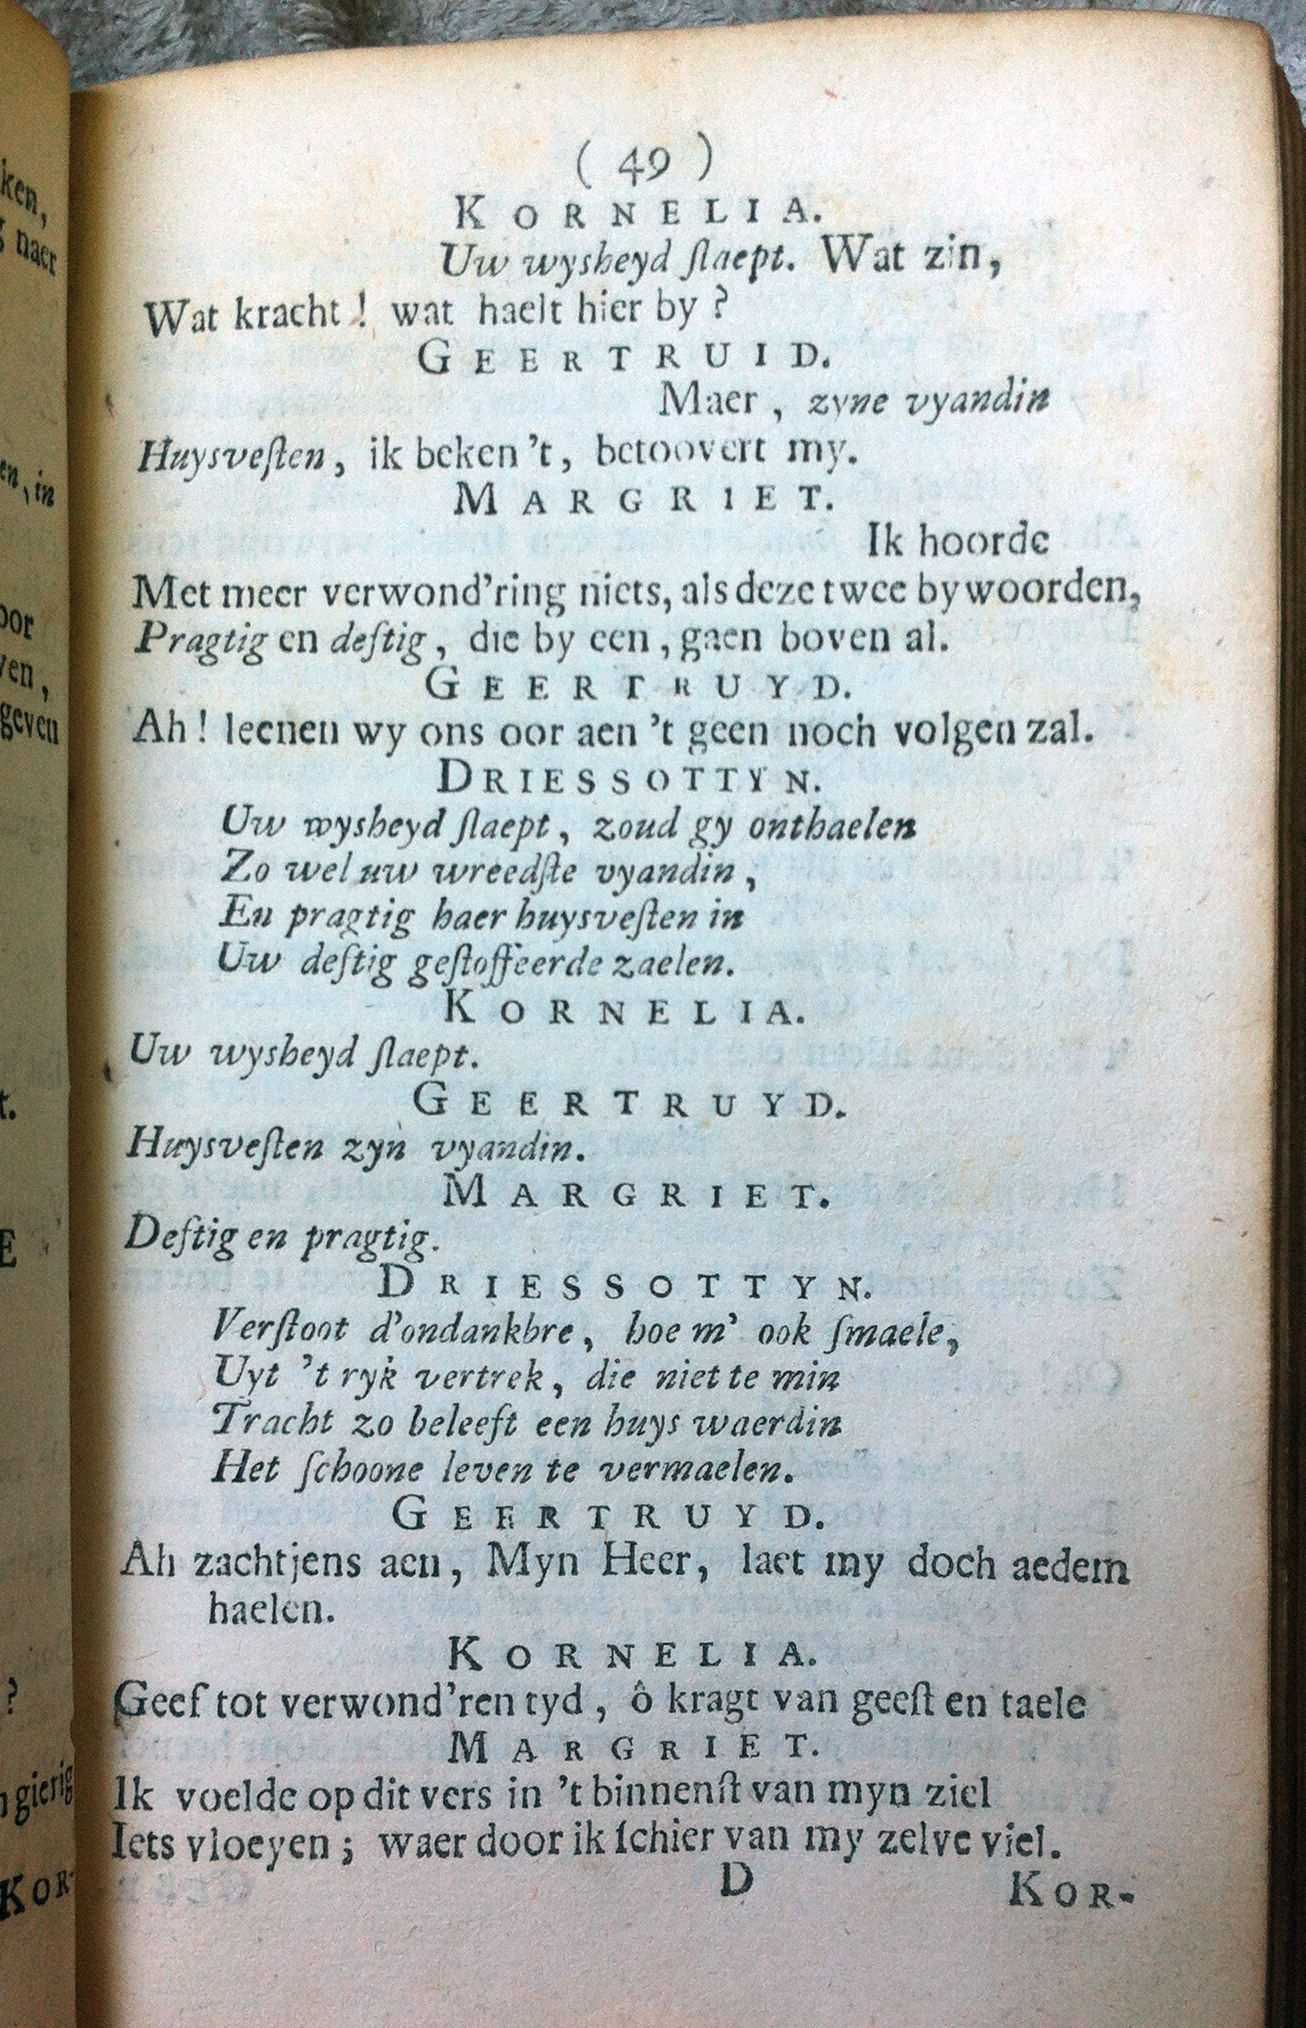 ( 49 )
KORNELIA.
Uw wysheyd ſlaept. Wat zin,
Wat kracht! wat haelt hier by?
GEERTRUID.
Maer, zyne vyandin
Huysveſten, ik beken't, betoovert my.
MARGRIET.
Ik hoorde
Met meer verwond'ring niets, als deze twee bywoorden,
Pragtig en deſtig, die by een, gaen boven al.
GEERTRUYD.
Ah! leenen wy ons oor aen 't geen noch volgen zal.
DRIESSOTTYN.
Uw wysheyd ſlaept, zoud gy onthaelen
Zo wel uw wreedſte vyandin,
En pragtig haer huysveſten in
Uw deſtig geſtoffeerde zaelen.
KORNELIA.
Uw wysheyd ſlaept.
GEERTRUYD.
Huysveſten zyn vyandin.
MARGRIET.
Deſtig en pragtig.
DRIESSOTTYN.
Verſtoot d'ondankbre, hoe m' ook ſmaele,
Uyt 't ryk vertrek, die niet te min
Tracht zo beleeft een huys waerdin
Het ſchoone leven te vermaelen.
GEERTRUYD.
Ah zachtjens aen, Myn Heer, laet my doch aedem
haelen.
KORNELIA.
Geef tot verwond'ren tyd, ô kragt van geeſt en taele
MARGRIET.
Ik voelde op dit vers in 't binnenſt van myn ziel
Iets vloeyen; waer door ik ſchier van my zelve viel.
D
KOR-
ken,
naer
en, in
oor
ven,
geven
t.
E
?
gierig
KOR-